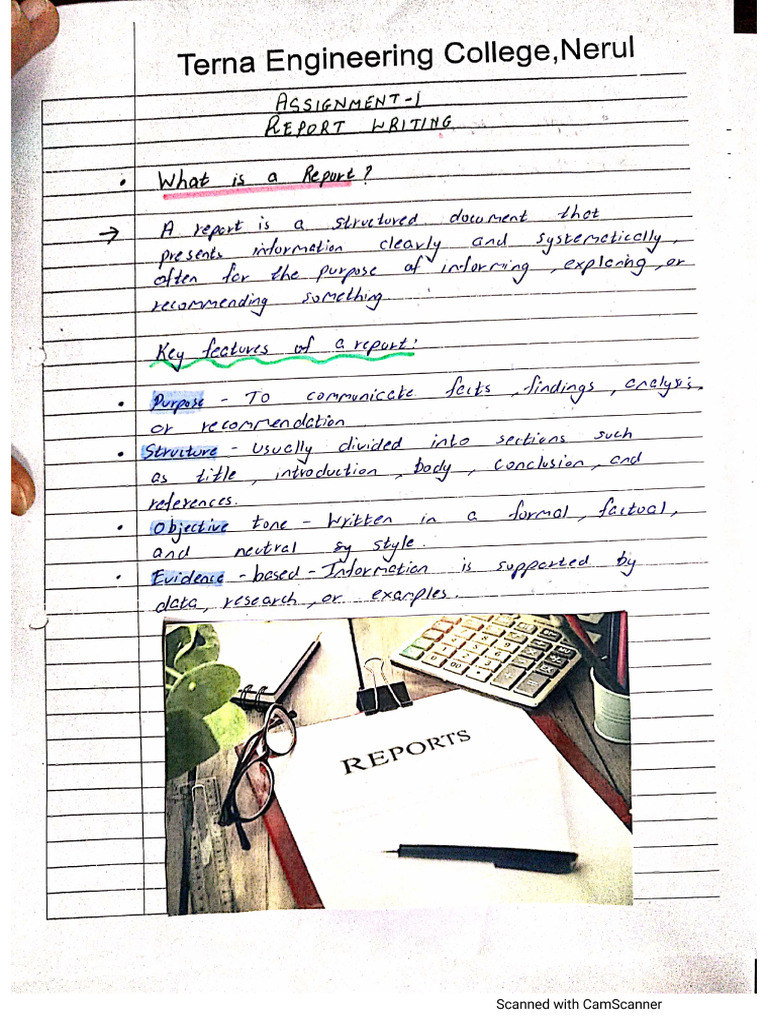 Terna Engineering College,Nerul
ASSIGNMENT-1
REPORT WRITING
• What is a Report?
→ A report is a structured document that
presents information clearly and systematically,
often for the purpose of informing, exploring, or
recommending something
Key features of a report:
• Purpose - To communicate facts, findings, analysis,
or recommendation
• Structure - Usually divided into sections such
as title, introduction, body, conclusion, and
references.
• Objective tone - Written in a formal, factual,
and neutral sy style.
• Evidence - based - Information is supported by
data, research, or examples.
REPORTS
Scanned with CamScanner